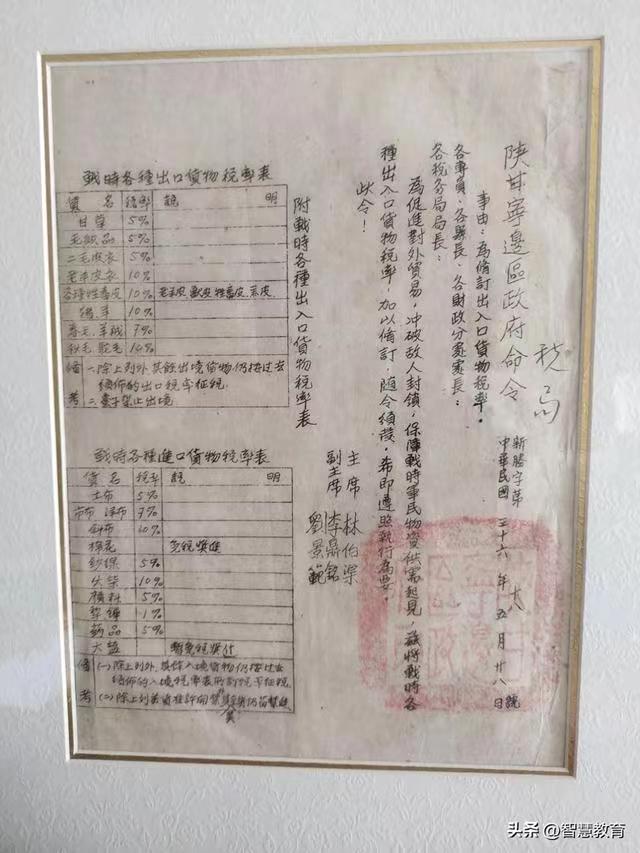 陕甘寧邊區政府命令
新勝字第 十八 號
中華民國三十六年五月廿八日
事由：為修訂出入口貨物税率。
各專員、各縣長、各財政分處處長：
各税务局局長：
為促進對外貿易，冲破敌人封鎖，保障戰時軍民物資供需起見，兹將戰時各
種出入口貨物税率，加以修訂，随令頒發，希即遵照执行為要。
此令！
主席 林伯渠
副主席 李鼎銘
劉景範
附戰時各種出入口貨物税率表
戰時各種出口貨物税率表
貨名 税率 説明
甘草 5%
毛織品 5%
二毛皮衣 5%
老羊皮衣 10%
各種牲畜皮 10%
猪羊 10%
春毛.羊絨 7%
秋毛.駝毛 14%
備考
一.除上列外,其餘出境貨物仍按过去
頒佈的出口税率征税.
二. 禁止出境
戰時各種進口貨物税率表
貨名 税率 説明
土布 5%
7%
斜布 10%
棉花 免税獎進
紗線 5%
火柴 10%
顔料 5%
1%
药品 5%
大盐 暫免税
備考
(一)除上列外,其餘入境貨物仍按过去
頒佈的入境税率表
(二)除上列
头条 @智慧教育